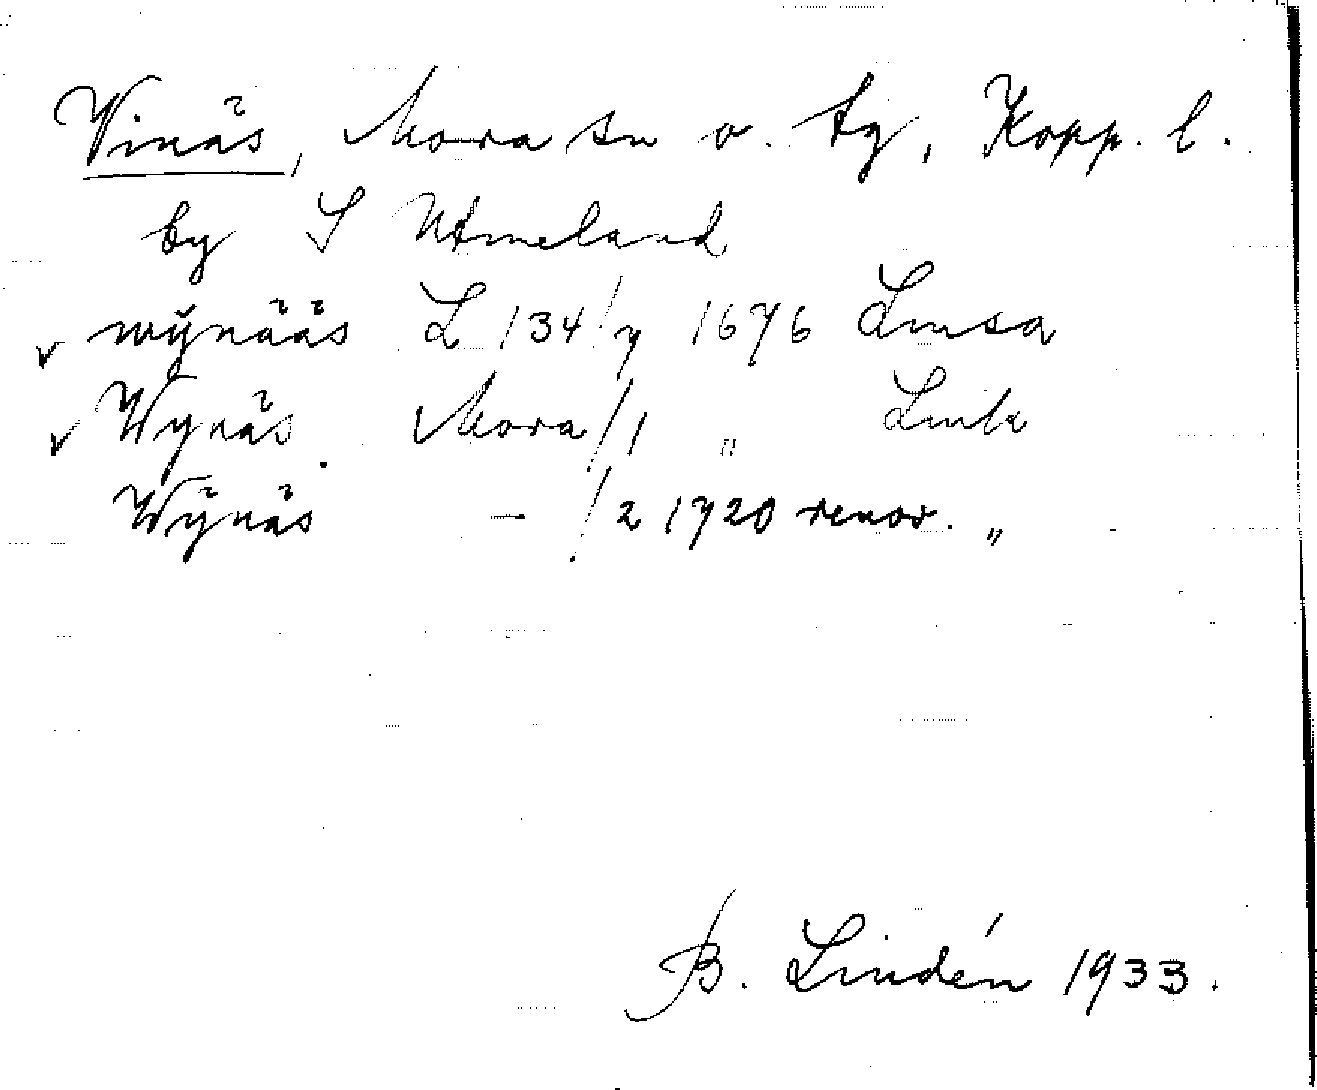 Vinäs, Mora sn o. tg, Kopp. l.
by S Utmeland
wÿnääs L 134/7 1676 Lmsa
Wynäs Mora/1 " Lmk
Wÿnäs - /2 1720 renov. "
B. Lindén 1933.